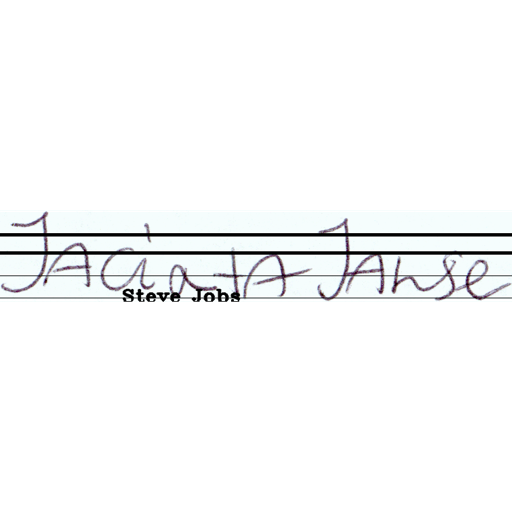 Jacinta Janse
Steve Jobs